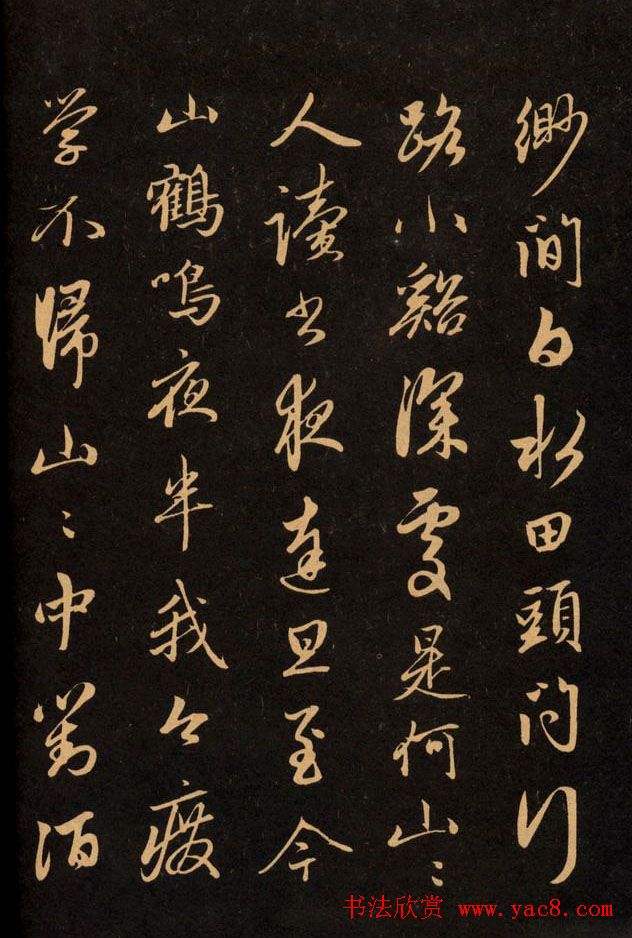 缈间白水田頭问行
路小谿深處是何山〻
人讀书夜達旦至今
山鶴鳴夜半我今廢
学不歸山〻中對酒
书法欣赏 www.yac8.com